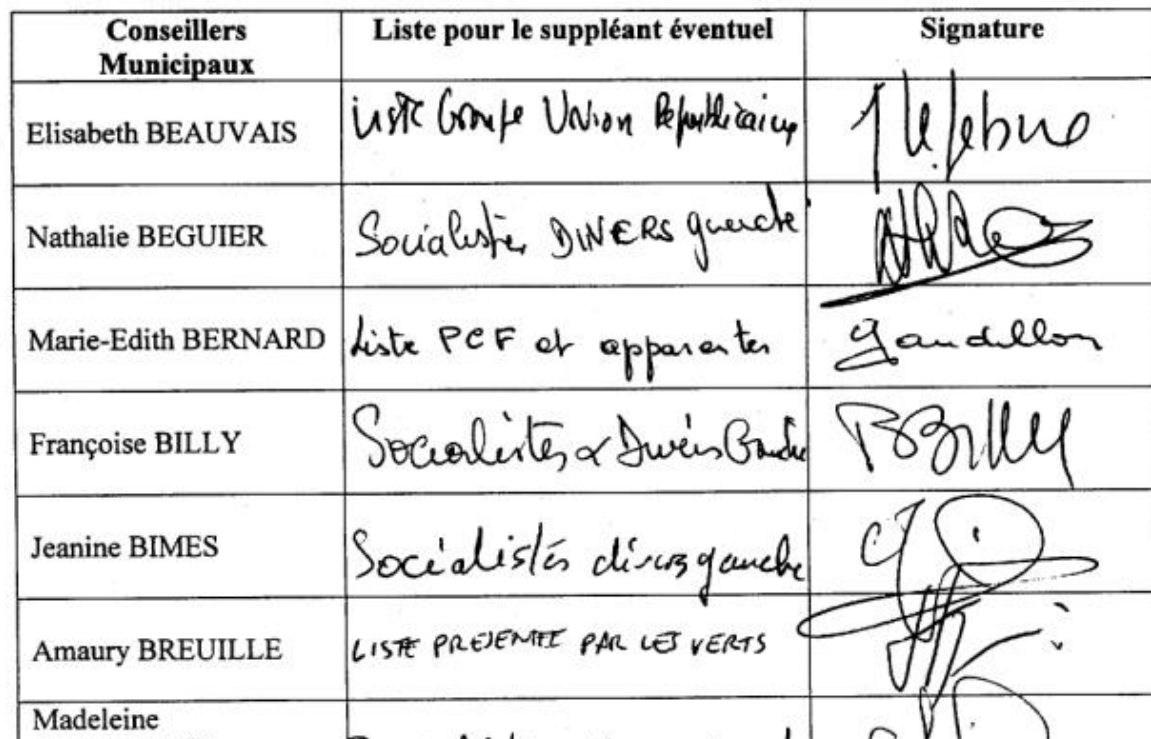 Conseillers Municipaux Liste pour le suppléant éventuel Signature
Elisabeth BEAUVAIS Liste Groupe Union Républicaine J Lefebvre
Nathalie BEGUIER Socialistes DIVERS gauche
Marie-Edith BERNARD Liste PCF et apparentes Gaudillon
Françoise BILLY Socialistes & Divers Gauche BILLY
Jeanine BIMES Socialistes divers gauche
Amaury BREUILLE LISTE PRESENTEE PAR LES VERTS
Madeleine